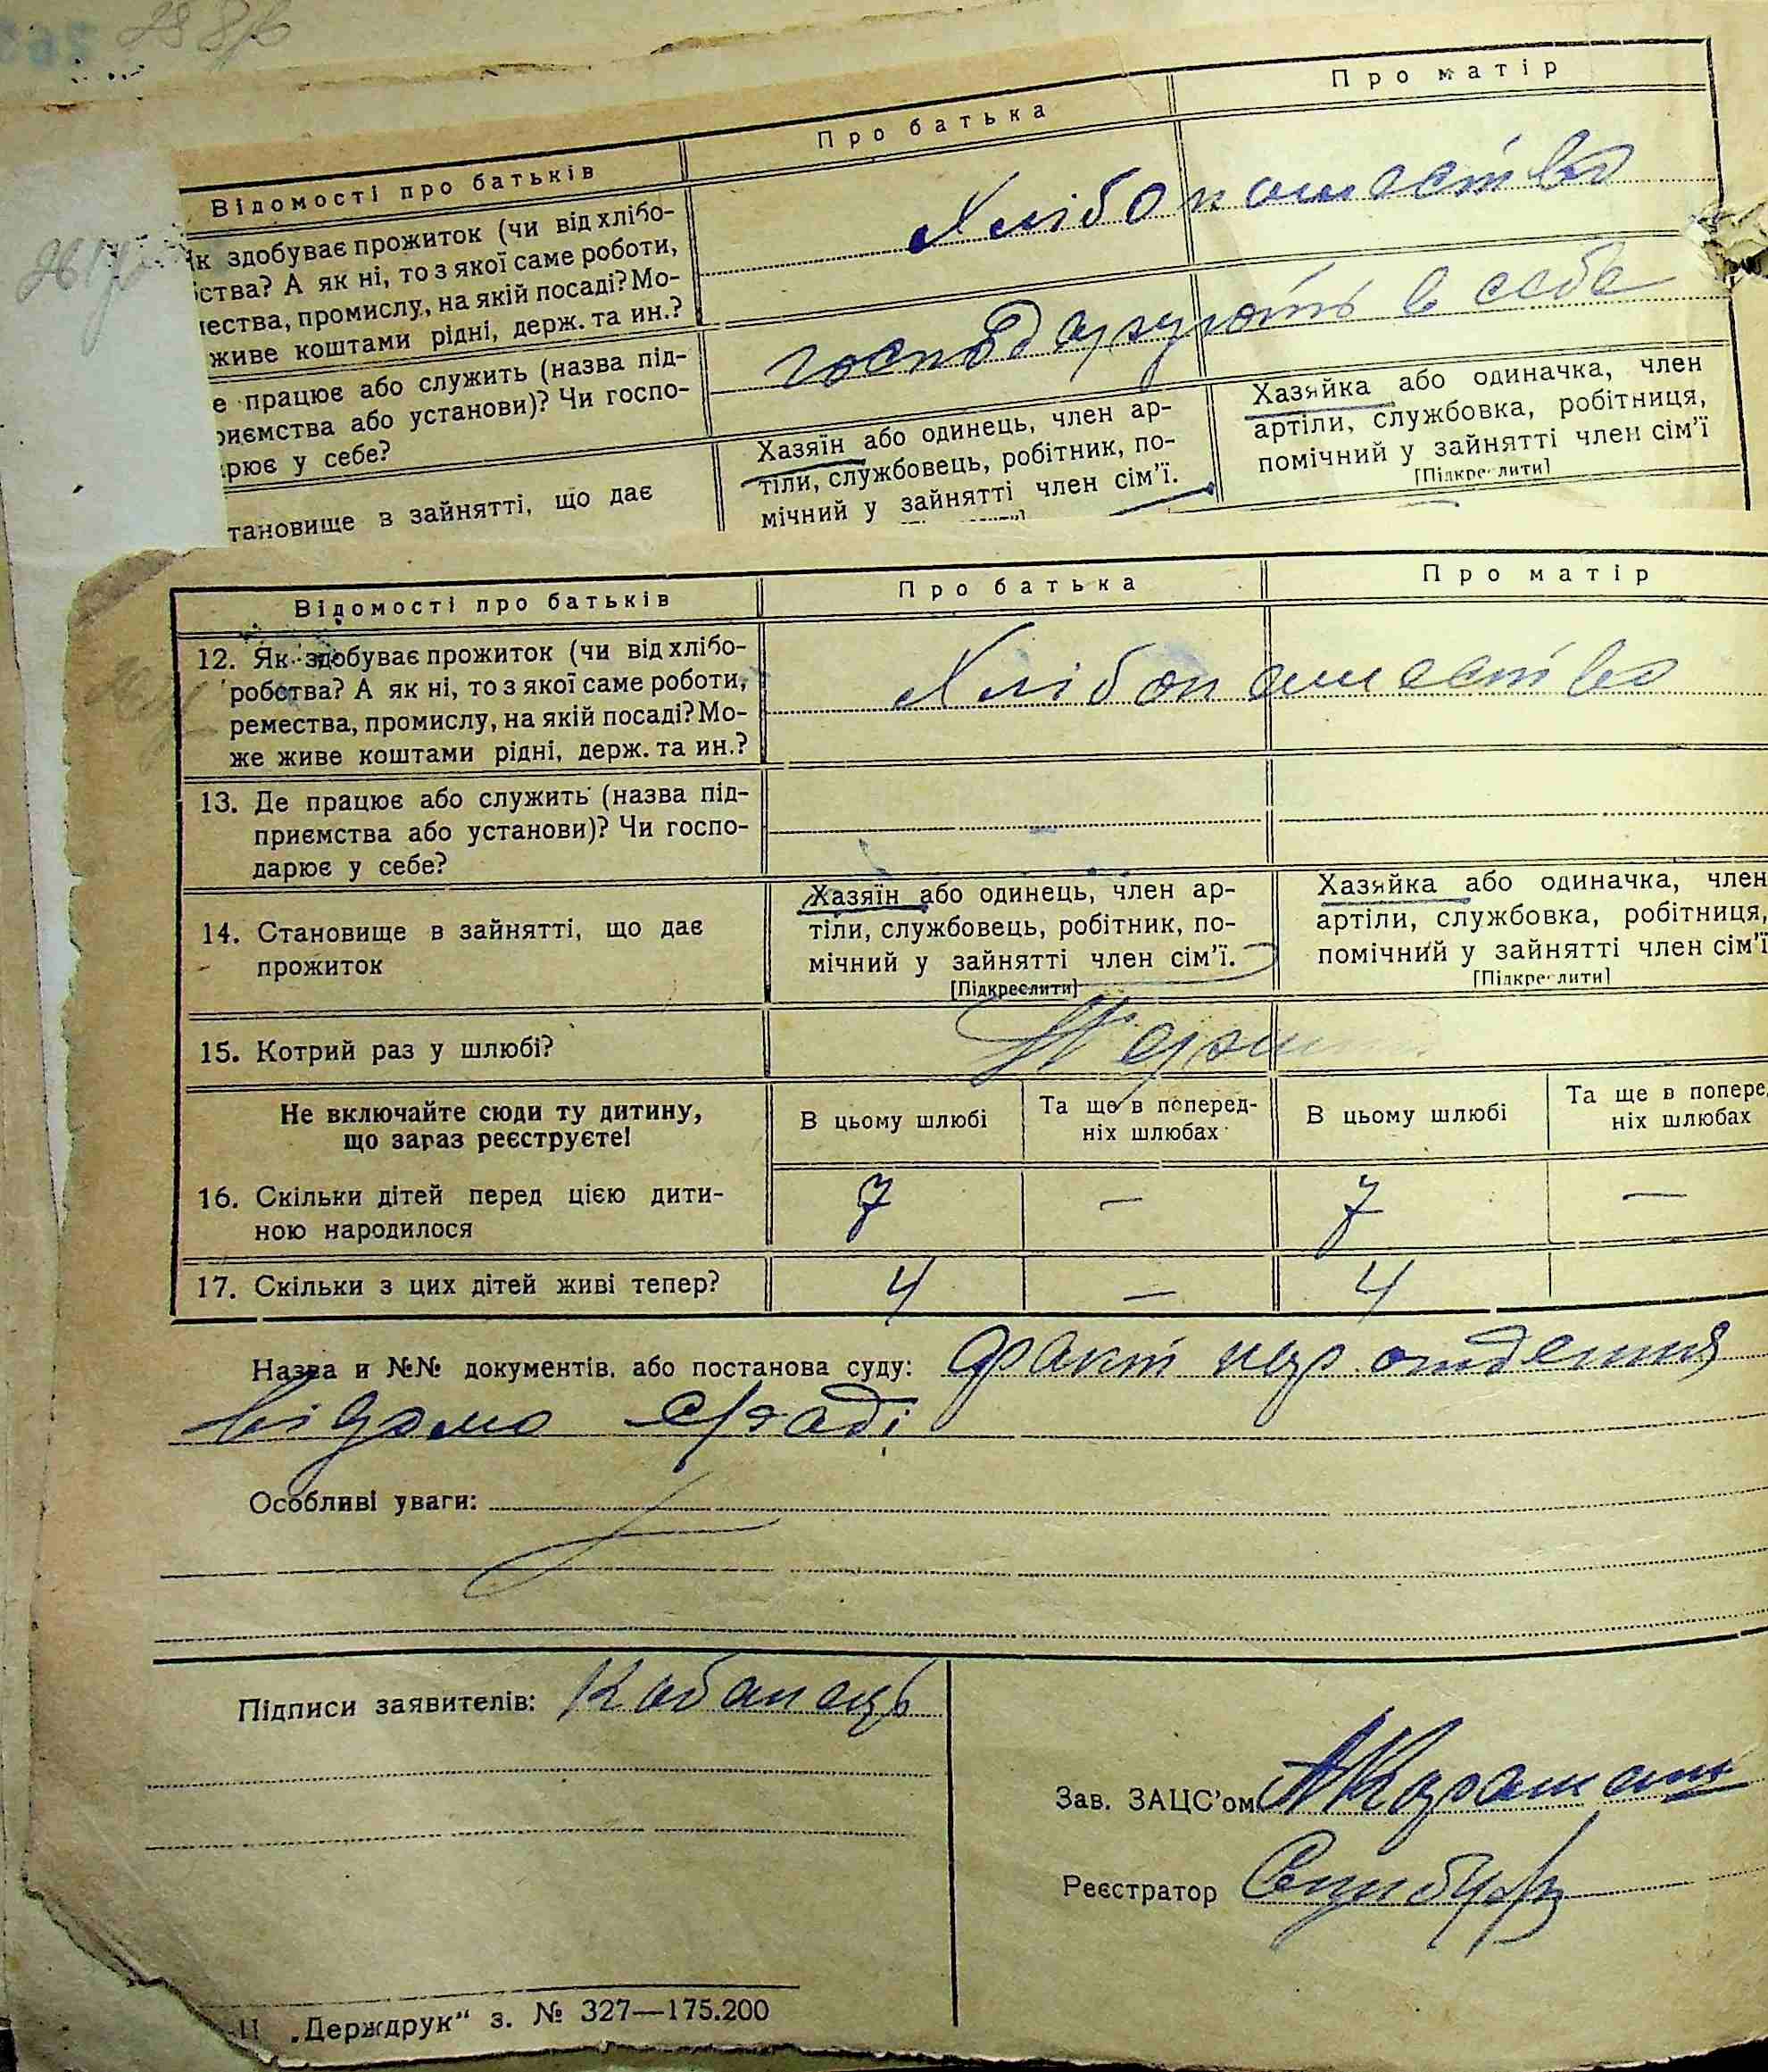 288/б
261/б
Відомості про батьків
Про батька
Про матір
ік здобуває прожиток (чи від хлібо-
іства? А як ні, то з якої саме роботи,
іества, промислу, на якій посаді? Мо-
живе коштами рідні, держ. та ин.?
Хлібопашество
е працює або служить (назва під-
риємства або установи)? Чи госпо-
рює у себе?
господарують в себе
тановище в зайнятті, що дає
Хазяїн або одинець, член ар-
тіли, службовець, робітник, по-
мічний у зайнятті член сім'ї.
Хазяйка або одиначка, член
артіли, службовка, робітниця,
помічний у зайнятті член сім'ї
[Підкреслити]
Відомості про батьків
Про батька
Про матір
12. Як здобуває прожиток (чи від хлібо-
робства? А як ні, то з якої саме роботи,
ремества, промислу, на якій посаді? Мо-
же живе коштами рідні, держ. та ин.?
Хлібопашество
13. Де працює або служить (назва під-
приємства або установи)? Чи госпо-
дарює у себе?
14. Становище в зайнятті, що дає
прожиток
Хазяїн або одинець, член ар-
тіли, службовець, робітник, по-
мічний у зайнятті член сім'ї.
[Підкреслити]
Хазяйка або одиначка, член
артіли, службовка, робітниця,
помічний у зайнятті член сім'ї
[Підкреслити]
15. Котрий раз у шлюбі?
Не включайте сюди ту дитину,
що зараз реєструєте!
В цьому шлюбі
Та ще в поперед-
ніх шлюбах
В цьому шлюбі
Та ще в попере
ніх шлюбах
16. Скільки дітей перед цією дити-
ною народилося
7 — 7 —
17. Скільки з цих дітей живі тепер?
4 — 4
Назва и №№ документів, або постанова суду: факт народження
відомо сраді
Особливі уваги:
Підписи заявителів: Кабанець
Зав. ЗАЦС'ом
Реєстратор
„Держдрук“ з. № 327—175.200